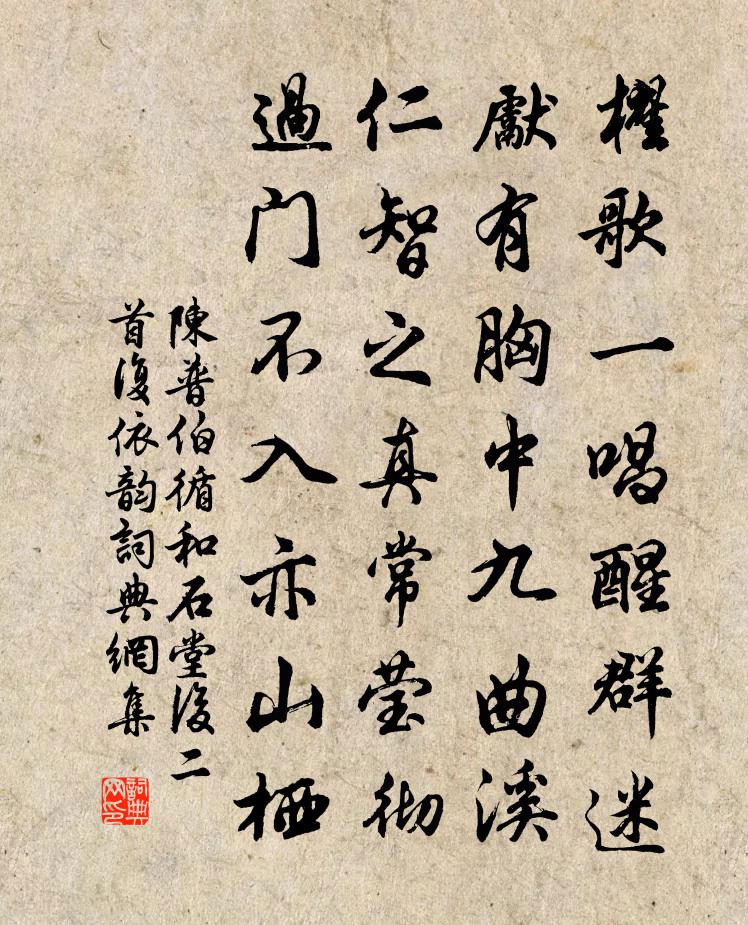 櫂歌一唱醒群迷
獻有胸中九曲溪
仁智之真常莹彻
過门不入亦山栖
陳普伯循和石堂後二
首復依韵詞典網集
詞典
网印